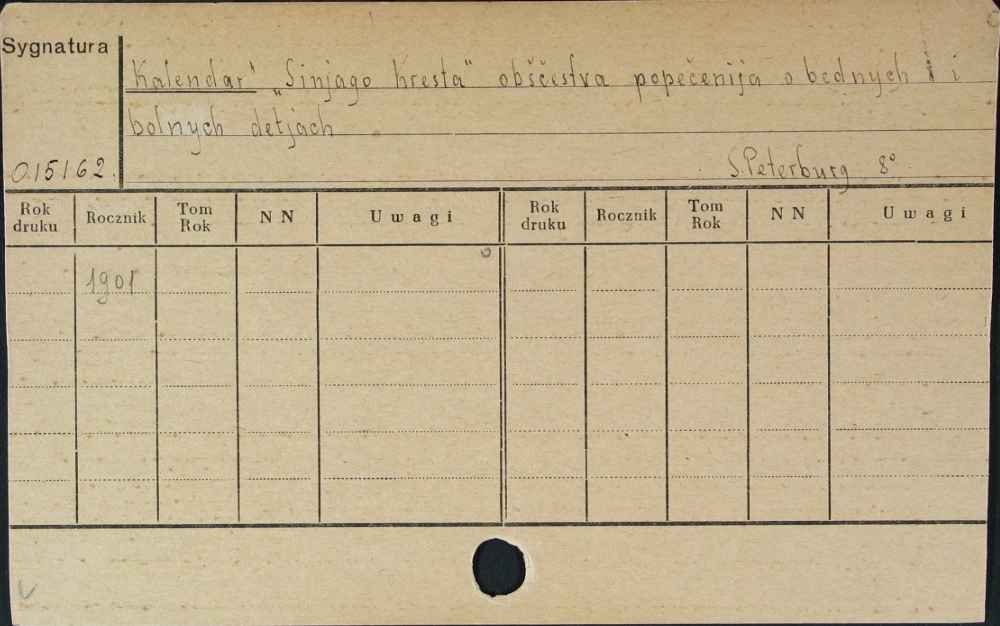 Sygnatura
Kalendar' „Sinjago Kresta" obščestva popečenija o bednych i
bolnych detjach
015162.
S. Peterburg 8°
Rok druku Rocznik Tom Rok NN Uwagi Rok druku Rocznik Tom Rok NN Uwagi
1901